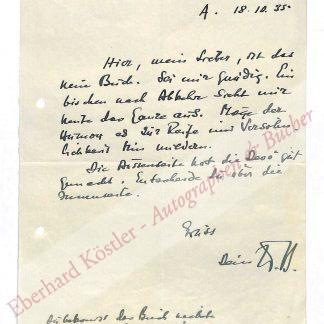 A. 18.10.35.
Hier, mein Lieber, ist das
neue Buch. Sei mir gnädig. Ein
bischen nach Abkehr sieht mir
heute das Ganze aus. Möge der
Humor es zur Reife und Versöhn-
lichkeit hin wieden.
Die Aussenseite hat die Desö gut
gemacht. Entscheide Du über die
Innenseite.
Gruss
Dein
du bekommst das Buch
Eberhard Köstler - Autographen & Bücher